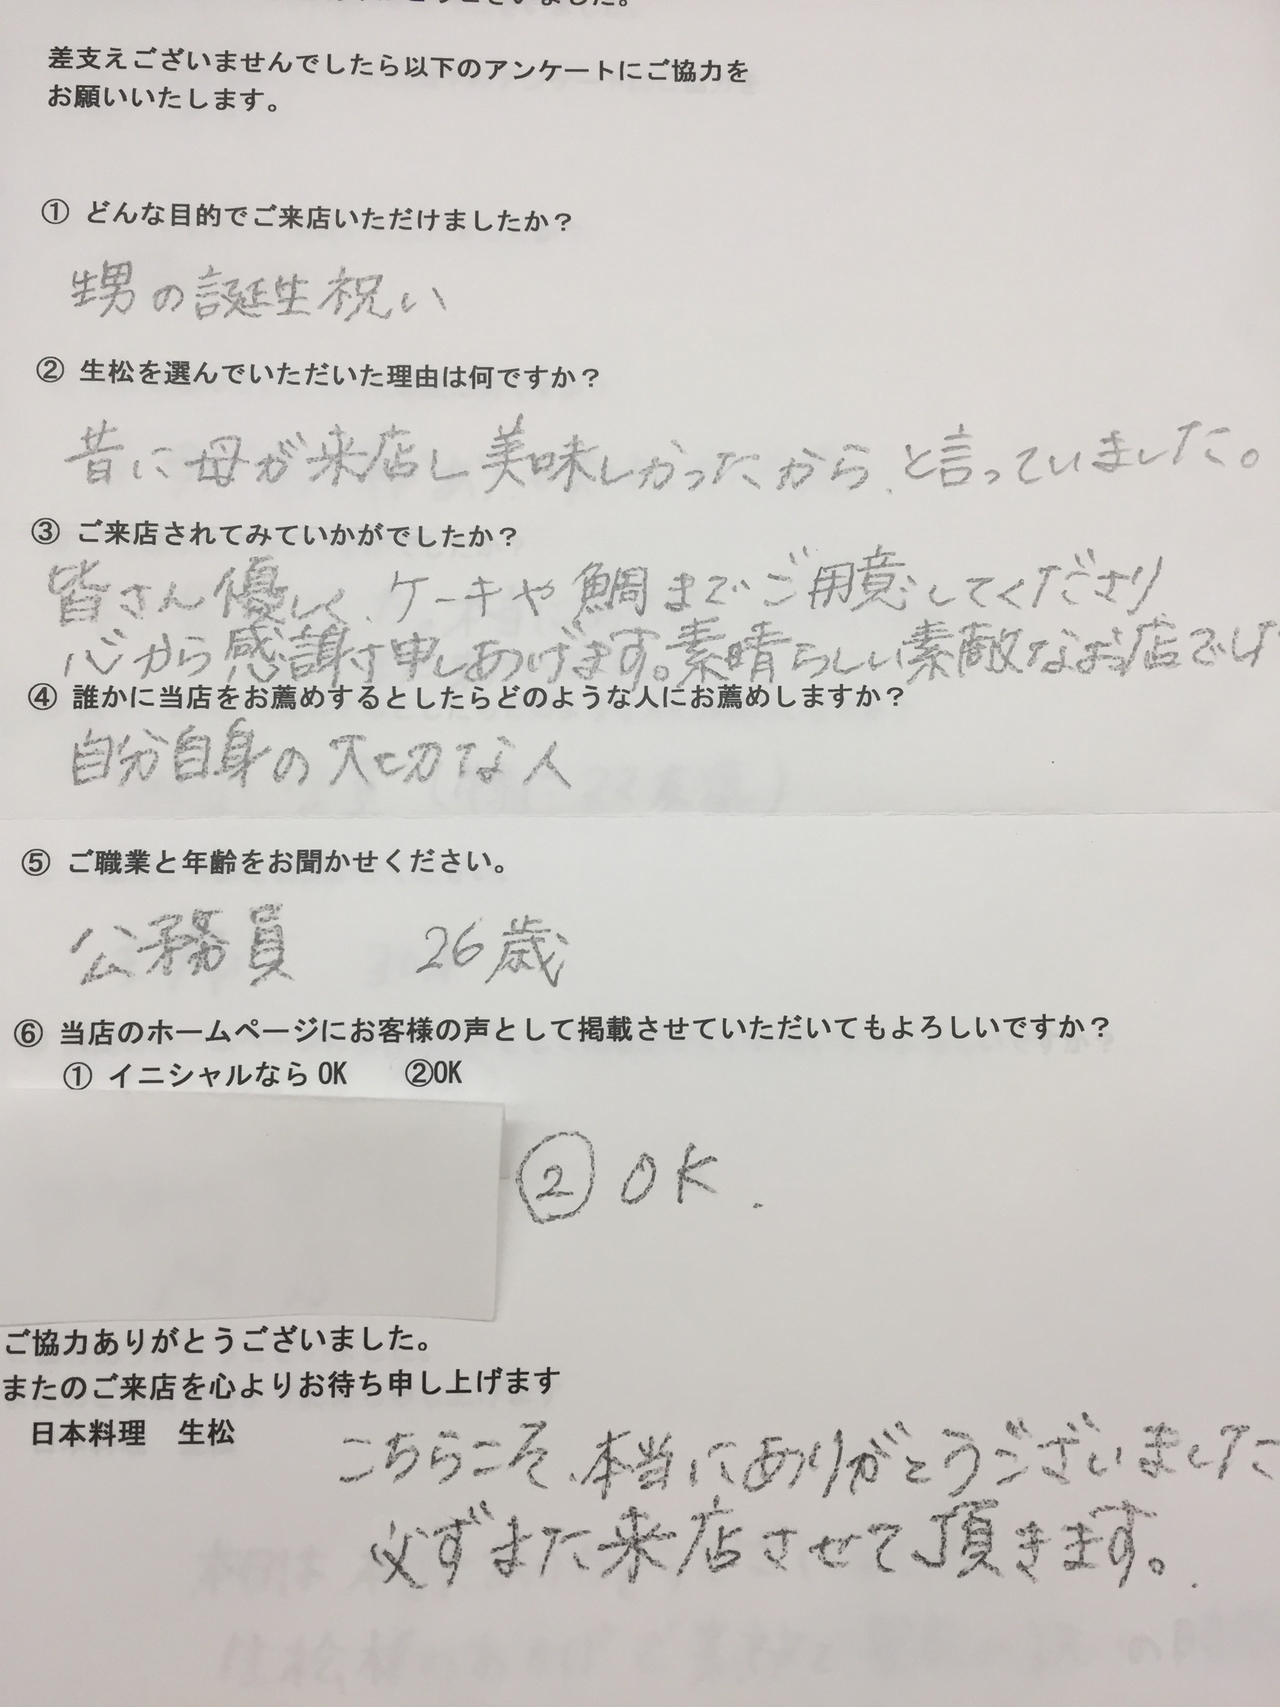 ございました。
差支えございませんでしたら以下のアンケートにご協力を
お願いいたします。
① どんな目的でご来店いただけましたか？
甥の誕生祝い
② 生松を選んでいただいた理由は何ですか？
昔に母が来店し美味しかったから、と言っていました。
③ ご来店されてみていかがでしたか？
皆さん優しく、ケーキや鯛までご用意してくださり
心から感謝申しあげます。素晴らしい素敵なお店で
④ 誰かに当店をお薦めするとしたらどのような人にお薦めしますか？
自分自身の大切な人
⑤ ご職業と年齢をお聞かせください。
公務員 26歳
⑥ 当店のホームページにお客様の声として掲載させていただいてもよろしいですか？
① イニシャルなら OK ②OK
② OK.
ご協力ありがとうございました。
またのご来店を心よりお待ち申し上げます
日本料理 生松
こちらこそ、本当にありがとうございました
必ずまた来店させて頂きます。